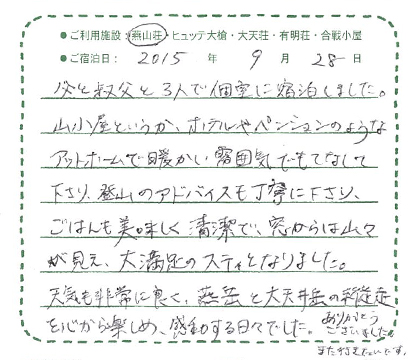 ●ご利用施設：燕山荘・ヒュッテ大槍・大天荘・有明荘・合戦小屋
●ご宿泊日：2015年 9月 28日
父と叔父と3人で個室に宿泊しました。
山小屋というか、ホテルやペンションのような
アットホームで暖かい雰囲気でもてなして
下さり、登山のアドバイスも丁寧に下さり、
ごはんも美味しく清潔で、窓からは山々
が見え、大満足のステイとなりました。
天気も非常に良く、燕岳と大天井岳の縦走
を心から楽しめ、感動する日々でした。
ありがとう
ございました！
また行きたいです。